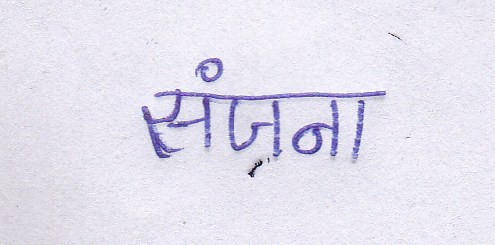 संज़ना